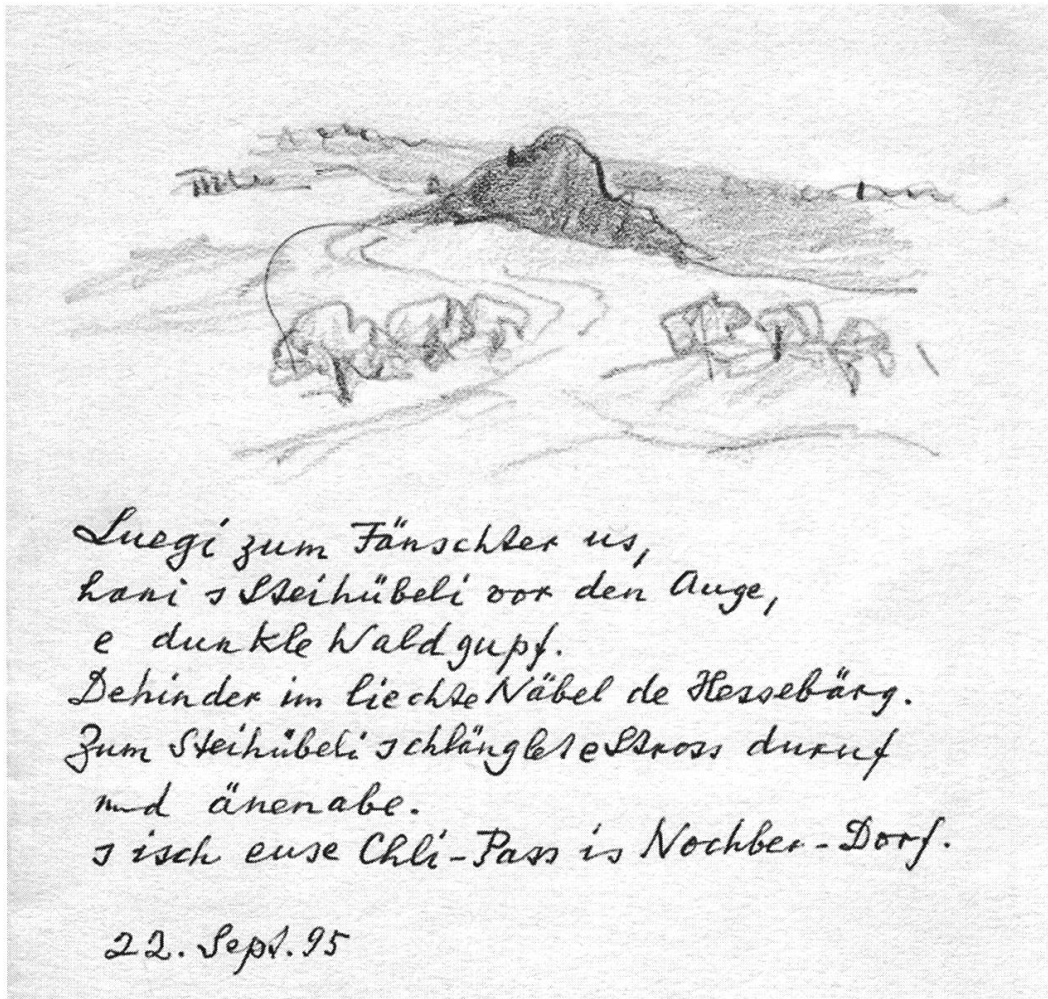 Luegi zum Fänschter us,
hani s Steihübeli vor den Auge,
e dunkle Waldgupf.
Dehinder im liechte Näbel de Hessebärg.
Zum Steihübeli schlänglet e Stross duruf
und änenabe.
s isch euse Chli-Pass is Nochber-Dorf.
22. Sept. 95